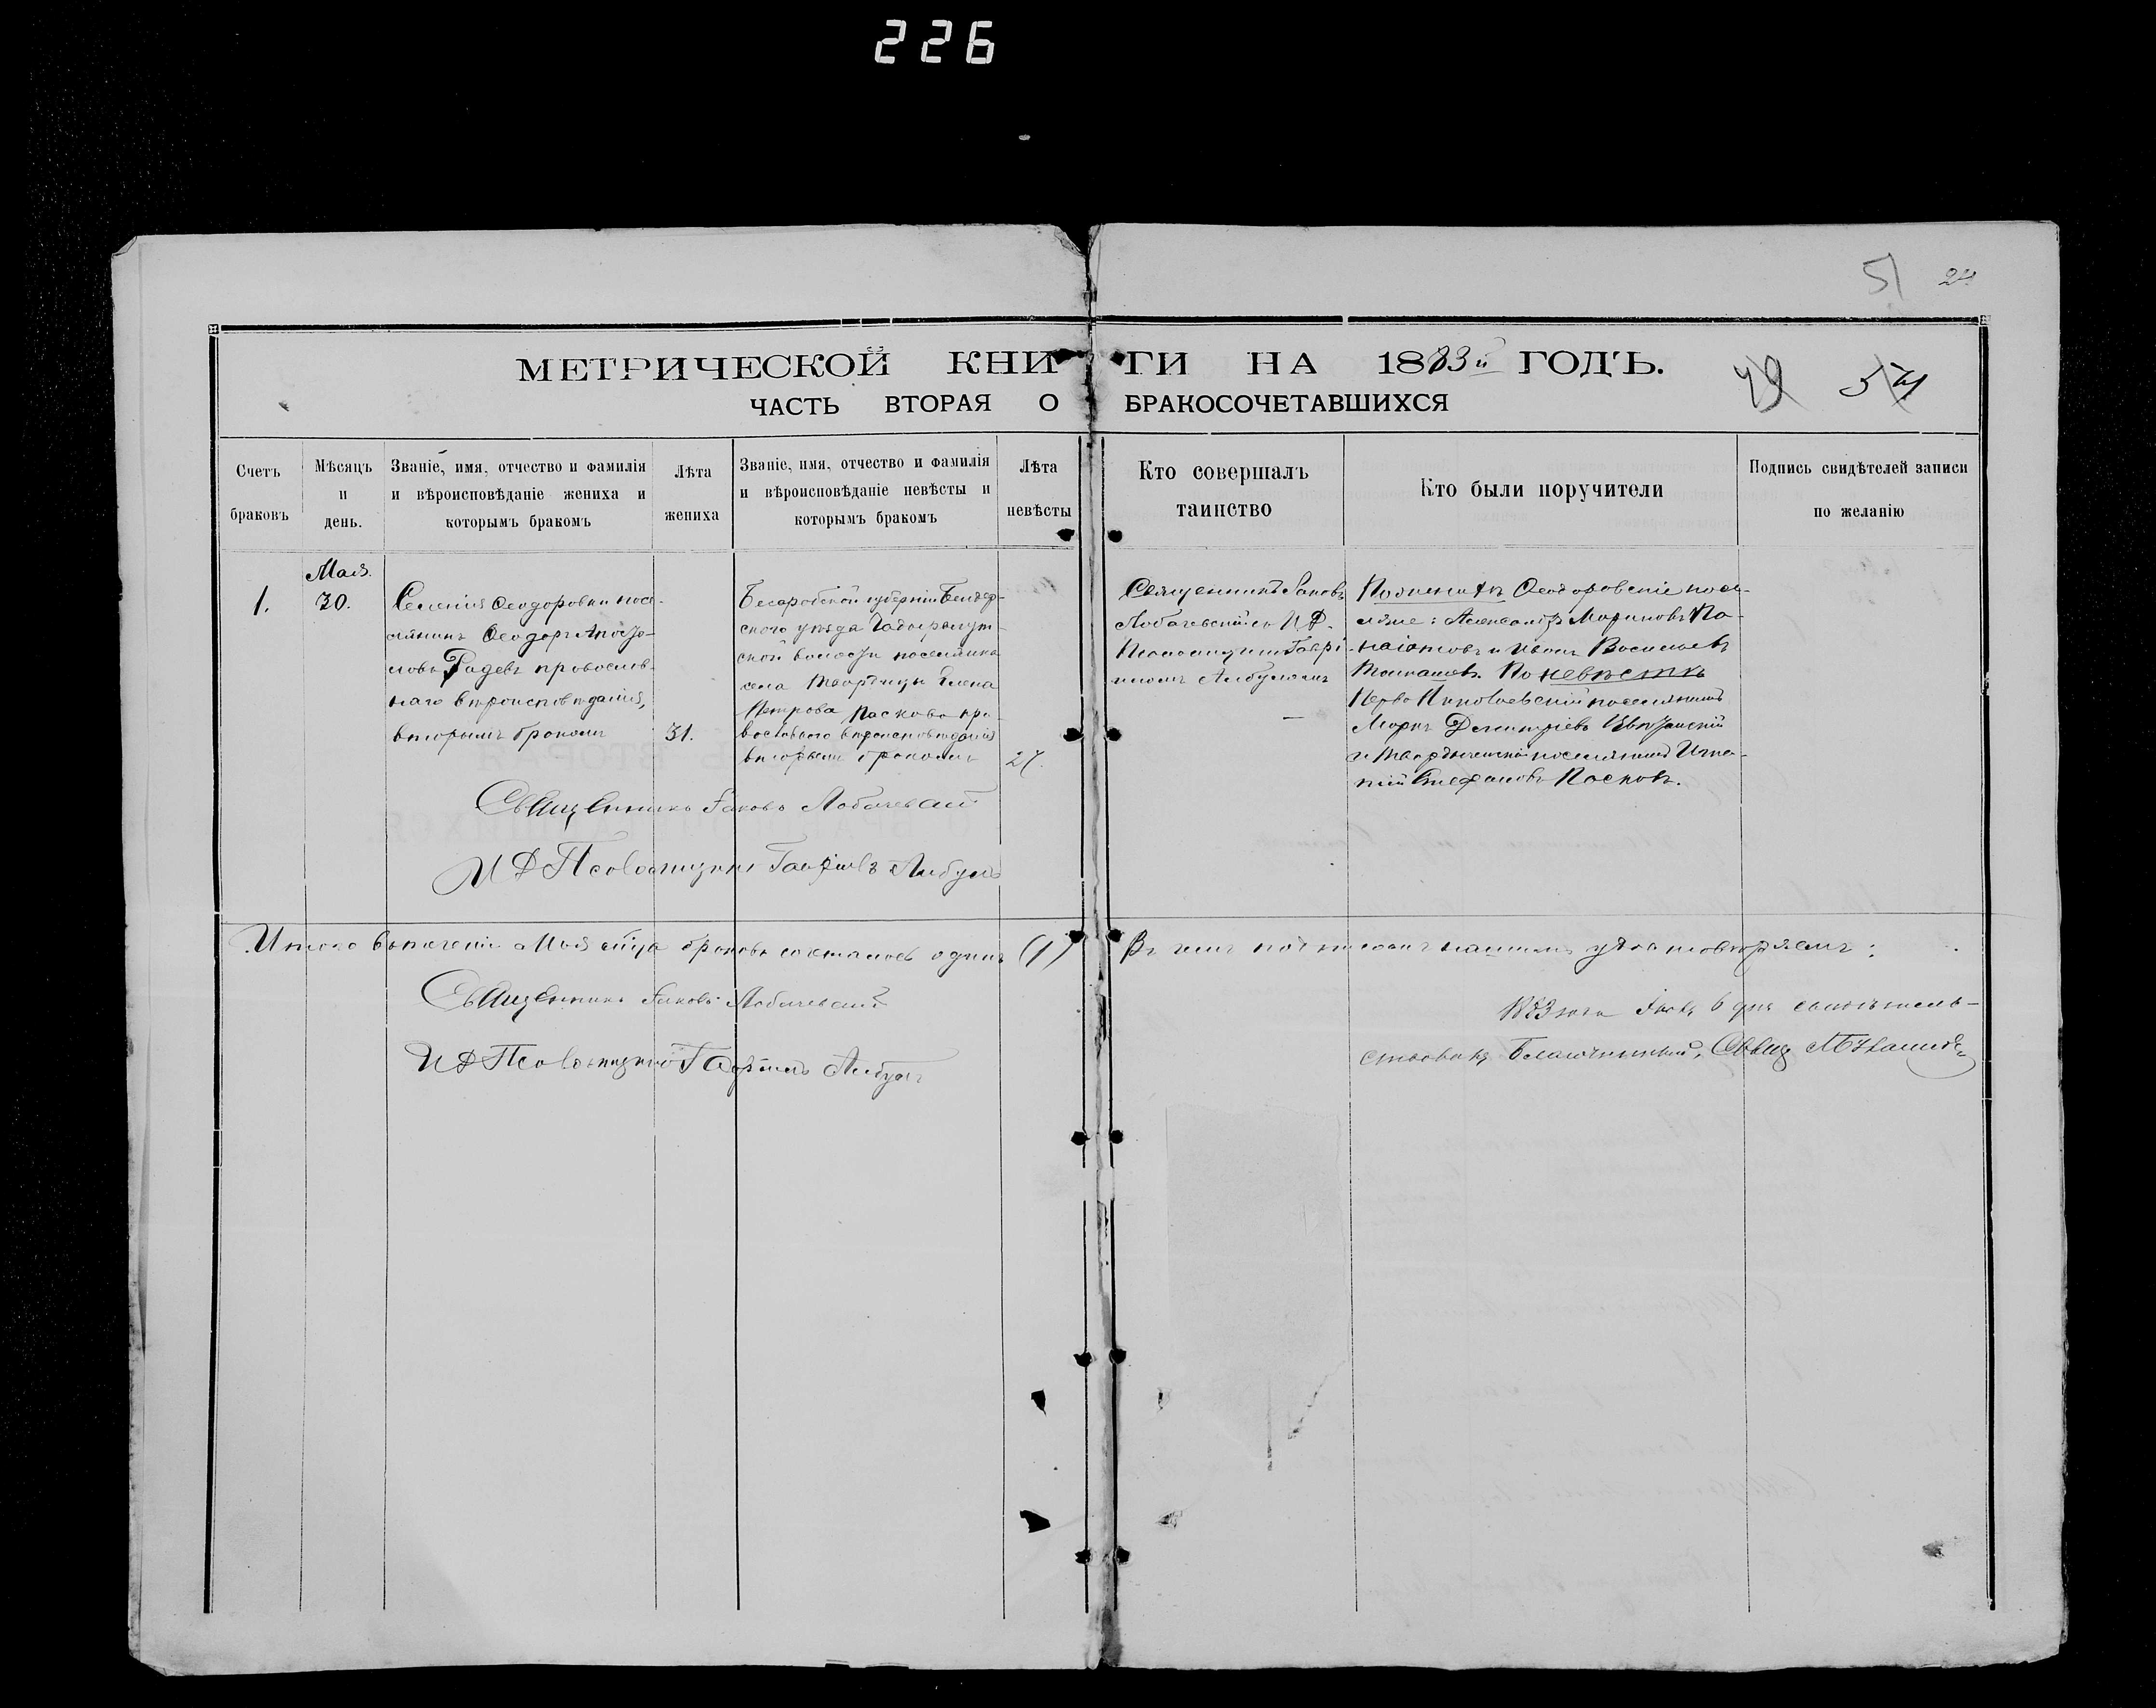 226
51 24
МЕТРИЧЕСКОЙ КНИГИ НА 1883й ГОДЪ.
49 54
ЧАСТЬ ВТОРАЯ О БРАКОСОЧЕТАВШИХСЯ
Счетъ
браковъ
Мѣсяцъ
и
день.
Званіе, имя, отчество и фамилія
и вѣроисповѣданіе жениха и
которымъ бракомъ
Лѣта
жениха
Званіе, имя, отчество и фамилія
и вѣроисповѣданіе невѣсты и
которымъ бракомъ
Лѣта
невѣсты
Кто совершалъ
таинство
Кто были поручители
Подпись свидѣтелей записи
по желанію
1.
Мая.
30.
Селенія Ѳеодоровки посе-
лянинъ Ѳеодоръ Апосто-
ловъ Радевъ православ-
наго вѣроисповѣданія,
вторымъ бракомъ
31.
Бессарабской губерніи Бендер-
скаго уѣзда
ской волости поселянка
села Твардицы Елена
Петрова Паскова пра-
вославнаго вѣроисповѣданія
вторымъ бракомъ
27.
Священникъ Іаковъ
Лобачевскій съ И. Д.
Псаломщика Гаврі-
иломъ
По женихѣ Ѳеодоровскіе посе-
ляне: Александръ Мариновъ Па-
наіотовъ и Иванъ Васильевъ
По невѣстѣ
Марко Димитріевъ
и Твардицкій поселянинъ Игна-
тій Стефановъ Пасковъ.
Священникъ Іаковъ Лобачевскій
И Д Псаломщика Гавріилъ
Итого въ теченіи Мая м-ца браковъ состоялось одинъ (1) Въ чемъ подписомъ нашимъ удостовѣряемъ:
Священникъ Іаковъ Лобачевскій
И Д Псаломщика Гавріилъ
1883 года 6 дня свидѣтель-
ствовалъ Благочинный, Свящ